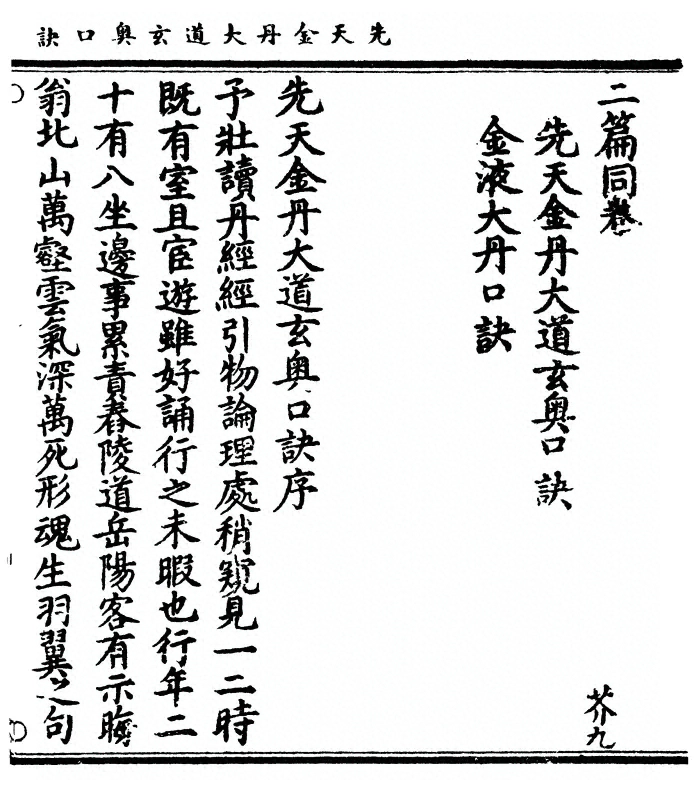 先天金丹大道玄奥口訣
二篇同卷 芥九
先天金丹大道玄奥口訣
金液大丹口訣
先天金丹大道玄奥口訣序
予壯讀丹經經引物論理處稍窺見一二時
既有室且宦遊雖好誦行之未暇也行年二
十有八坐邊事累責舂陵道岳陽客有示晦
翁北山萬壑雲氣深萬死形魂生羽翼之句